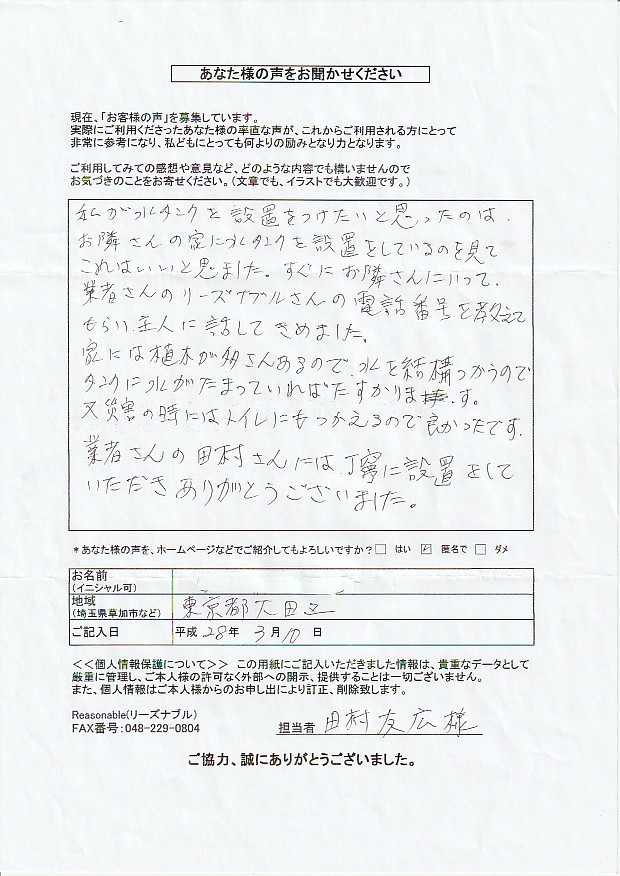 あなた様の声をお聞かせください
現在、「お客様の声」を募集しています。
実際にご利用くださったあなた様の率直な声が、これからご利用される方にとって
非常に参考になり、私どもにとっても何よりの励みとなり力となります。
ご利用してみての感想や意見など、どのような内容でも構いませんので
お気づきのことをお寄せください。(文章でも、イラストでも大歓迎です。)
私が水タンクを設置をつけたいと思ったのは、
お隣さんの家に水タンクを設置をしているのを見て
これはいいと思ました。すぐにお隣さんにいって、
業者さんのリーズナブルさんの電話番号を教えて
もらい主人に話してきめました。
家には植木が多さんあるので、水を結構つかうので
タンクに水がたまっていればたすかります。
又災害の時にはトイレにもつかえるので良かったです。
業者さんの田村さんには、丁寧に設置をして
いただきありがとうございました。
*あなた様の声を、ホームページなどでご紹介してもよろしいですか?□ はい ☑ 匿名で □ ダメ
お名前
(イニシャル可)
地域
(埼玉県草加市など) 東京都大田区
ご記入日 平成 28年 3月10日
<<個人情報保護について>> この用紙にご記入いただきました情報は、貴重なデータとして
厳重に管理し、ご本人様の許可なく外部への開示、提供することは一切ございません。
また、個人情報はご本人様からのお申し出により訂正、削除致します。
Reasonable(リーズナブル)
FAX番号:048-229-0804 担当者 田村友広様
ご協力、誠にありがとうございました。